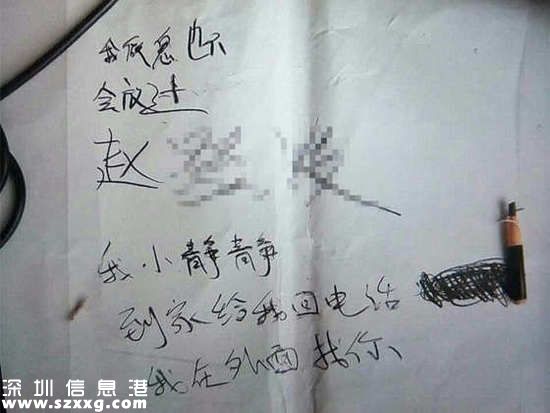 我灰息也不
会放过
赵
我小静静
到家给我回电话
我在外面找你、
深圳信息港
www.szxxg.com